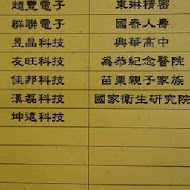 超豐電子 東琳精密
群聯電子 國泰人壽
昱晶科技 興華高中
友旺科技 為恭紀念醫院
佳邦科技 苗栗親子家族
漢磊科技 國家衛生研究院
坤遠科技